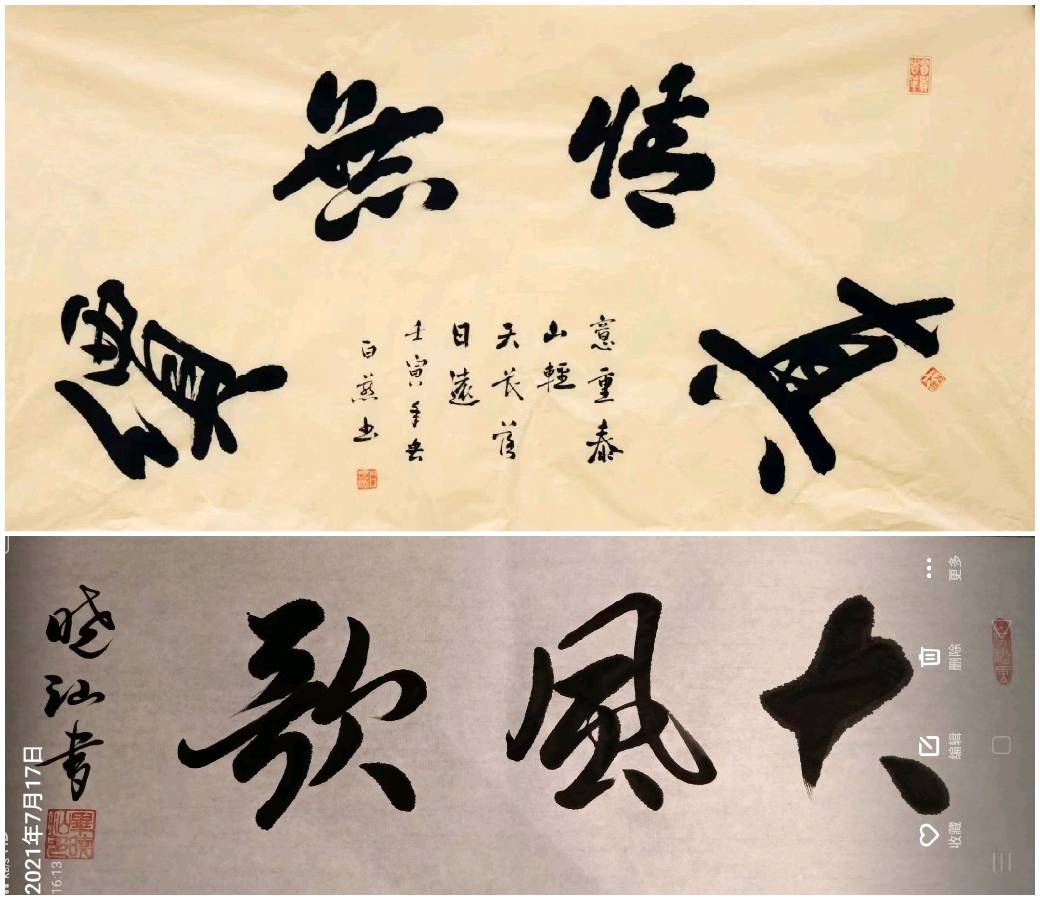 真情無價
意重泰
山輕
天長落
日遠
壬寅年
百燕书
大風歌
晓汕書
2021年7月17日
16:13
收藏
编辑
删除
更多